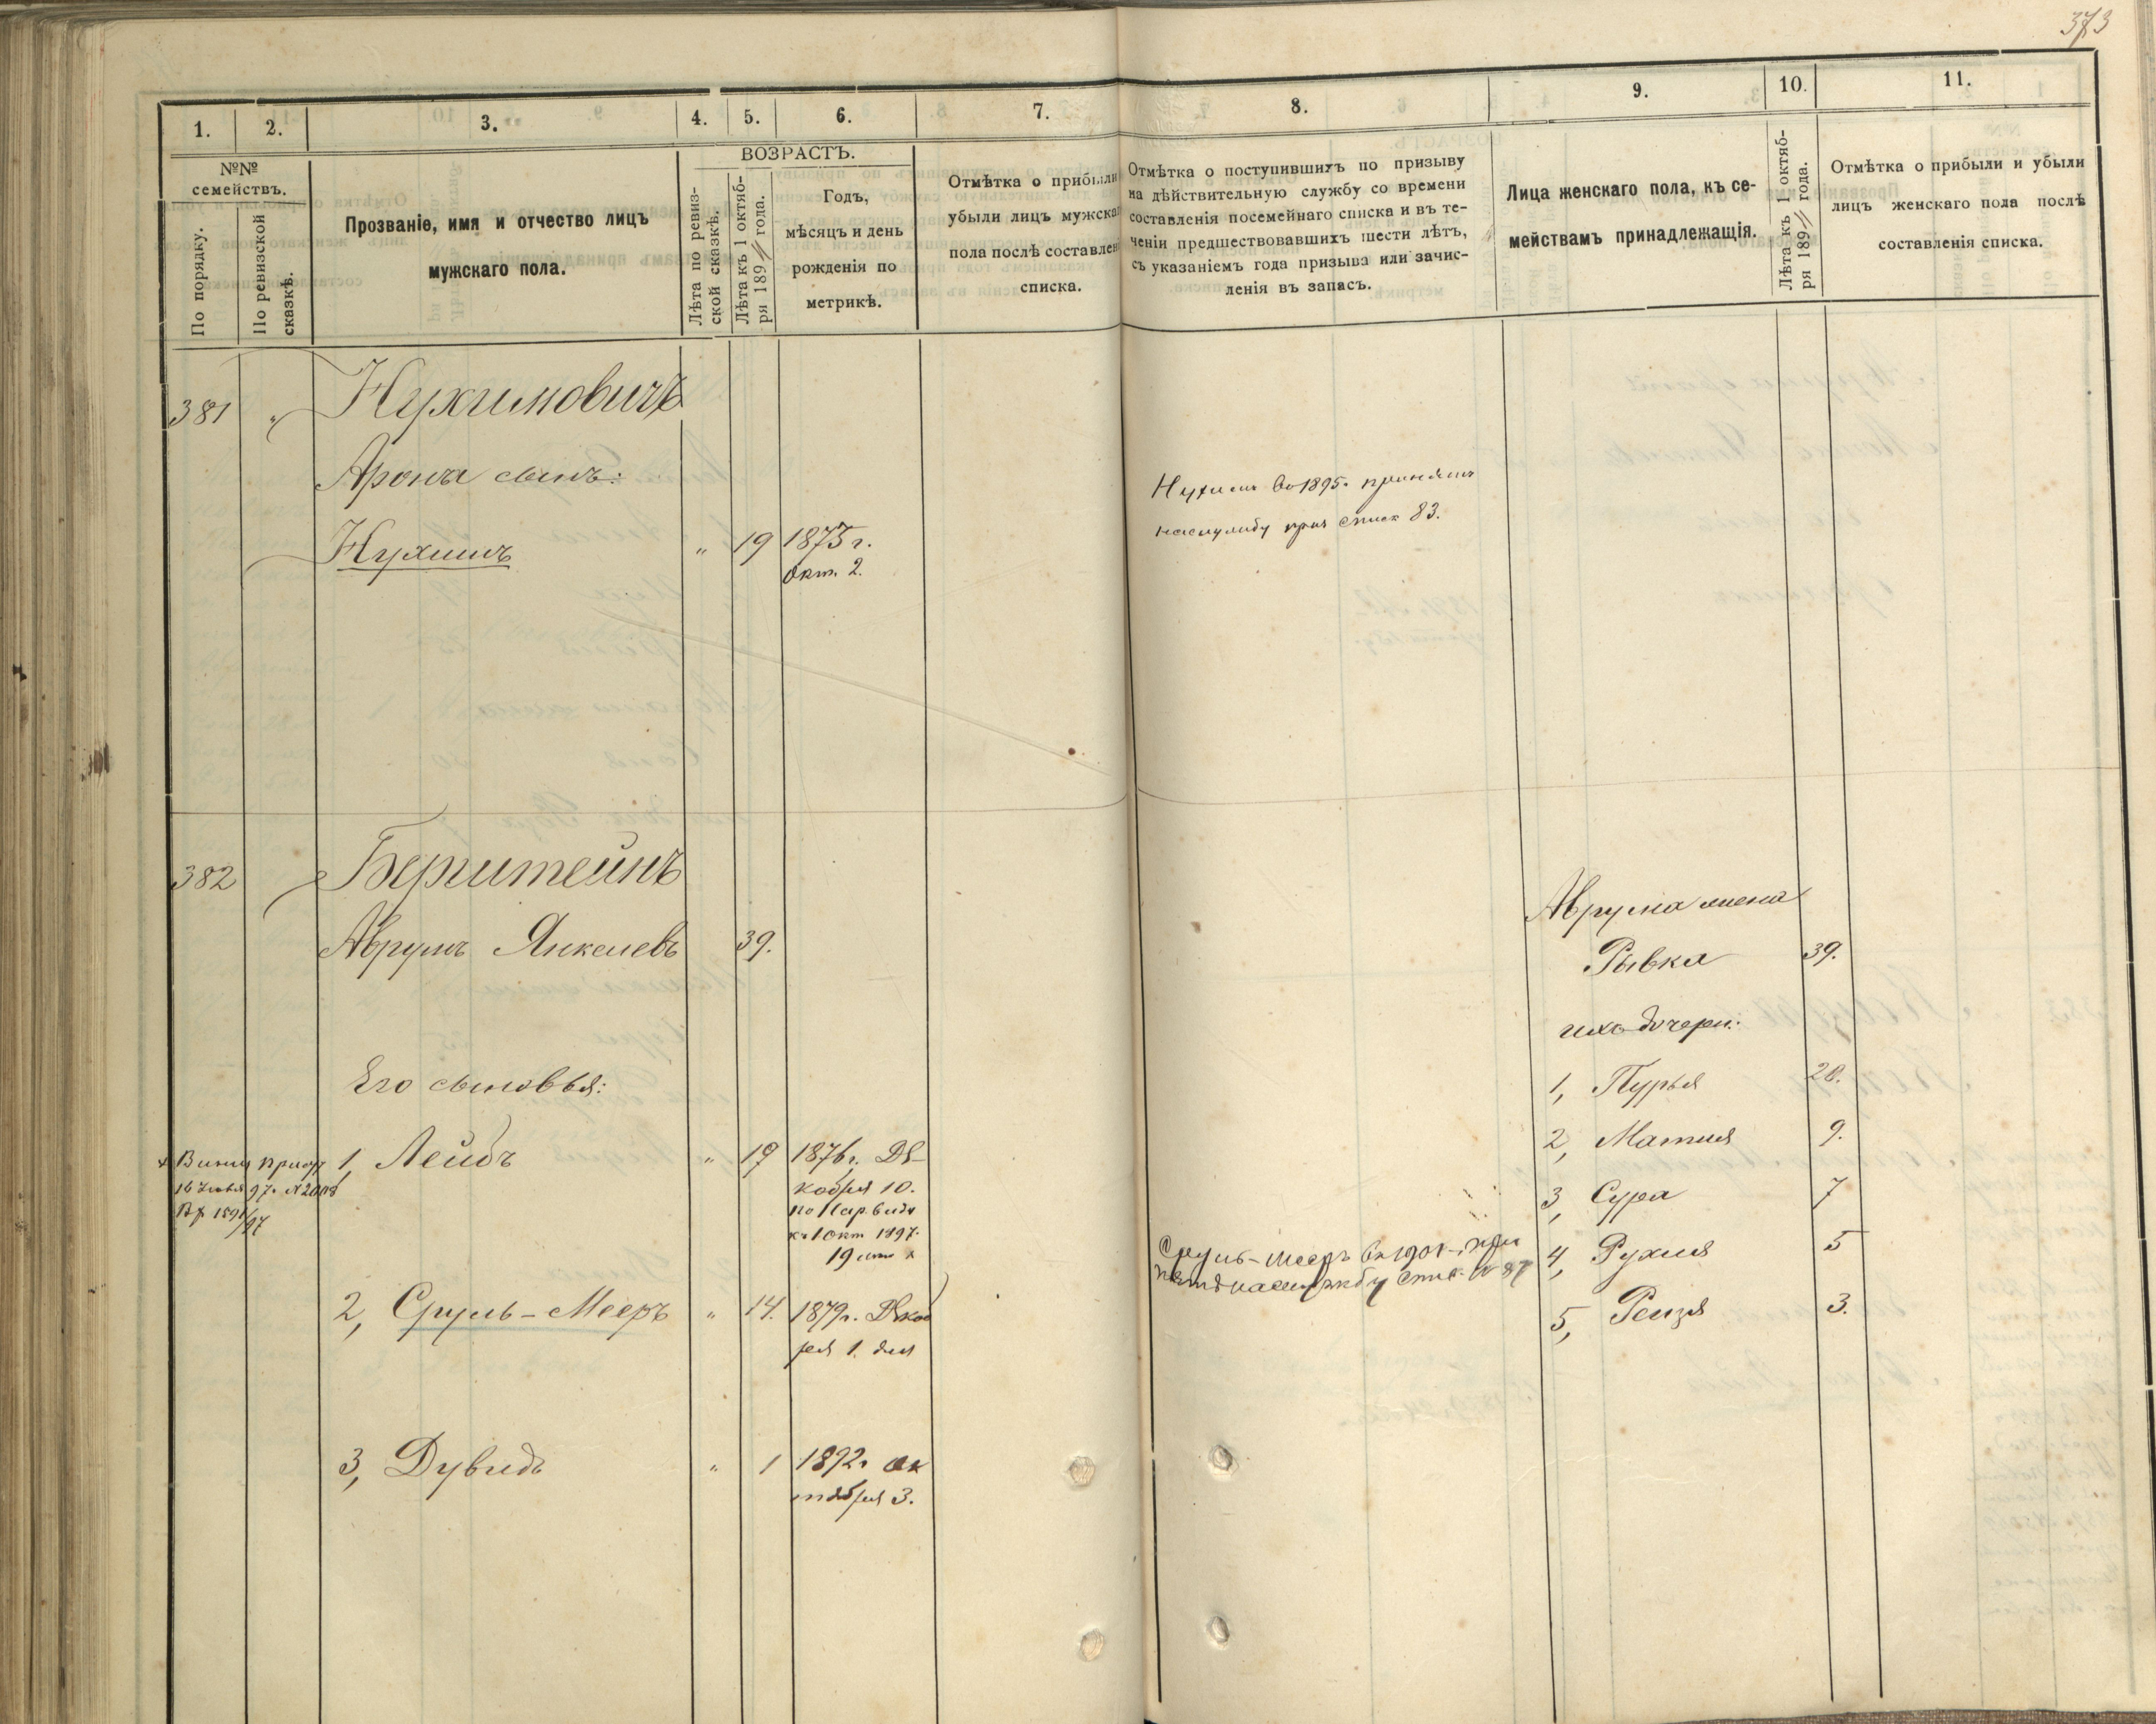 373
1.
2.
3.
4.
5.
6.
7.
8.
9.
10.
11.
№№
семействъ.
По порядку.
По ревизской
сказкѣ.
Прозваніе, имя и отчество лицъ
мужскаго пола.
ВОЗРАСТЪ.
Лѣта по ревиз-
ской сказкѣ.
Лѣта къ 1 октяб-
ря 189 года.
Годъ,
мѣсяцъ и день
рожденія по
метрикѣ.
Отмѣтка о прибыли
убыли лицъ мужска
пола послѣ составлен
списка.
Отмѣтка о поступившихъ по призыву
на дѣйствительную службу со времени
составленія посемейнаго списка и въ те-
ченіи предшествовавшихъ шести лѣтъ,
съ указаніемъ года призыва или зачис-
ленія въ запасъ.
Лица женскаго пола, къ се-
мействамъ принадлежащія.
Лѣта къ 1 октяб-
ря 189 года.
Отмѣтка о прибыли и убыли
лицъ женскаго пола послѣ
составленія списка.
381 „ Нухимовичъ
Арона сынъ:
Нухимъ „ 19 1873 г.
Окт. 2.
Нухимъ въ 1895 г. принятъ
на службу при списк 83.
382 Берштейнъ
Аврумъ Янкелевъ 39.
Его сыновья:
1, Лейбъ „ 19 1876 г. Де-
кабря 10.
по нар. виду
къ 1 окт 1897.
19 лѣтъ х
х Винниц присут
16 97 г. №
Вх 1591/97
2, Сруль-Мееръ „ 14. 1879 г. Декаб
ря 1. дня
3, Дувидъ „ 1 1892 г. Ок
тября 3.
Сруль-Мееръ въ 1901 г. при
нятъ на службу списк. № 87
Аврума жена
Рывка 39.
ихъ дочери:
1, Пурья 20.
2, Матля 9.
3, Сура 7
4, Рухля 5
5, Рейзя 3.